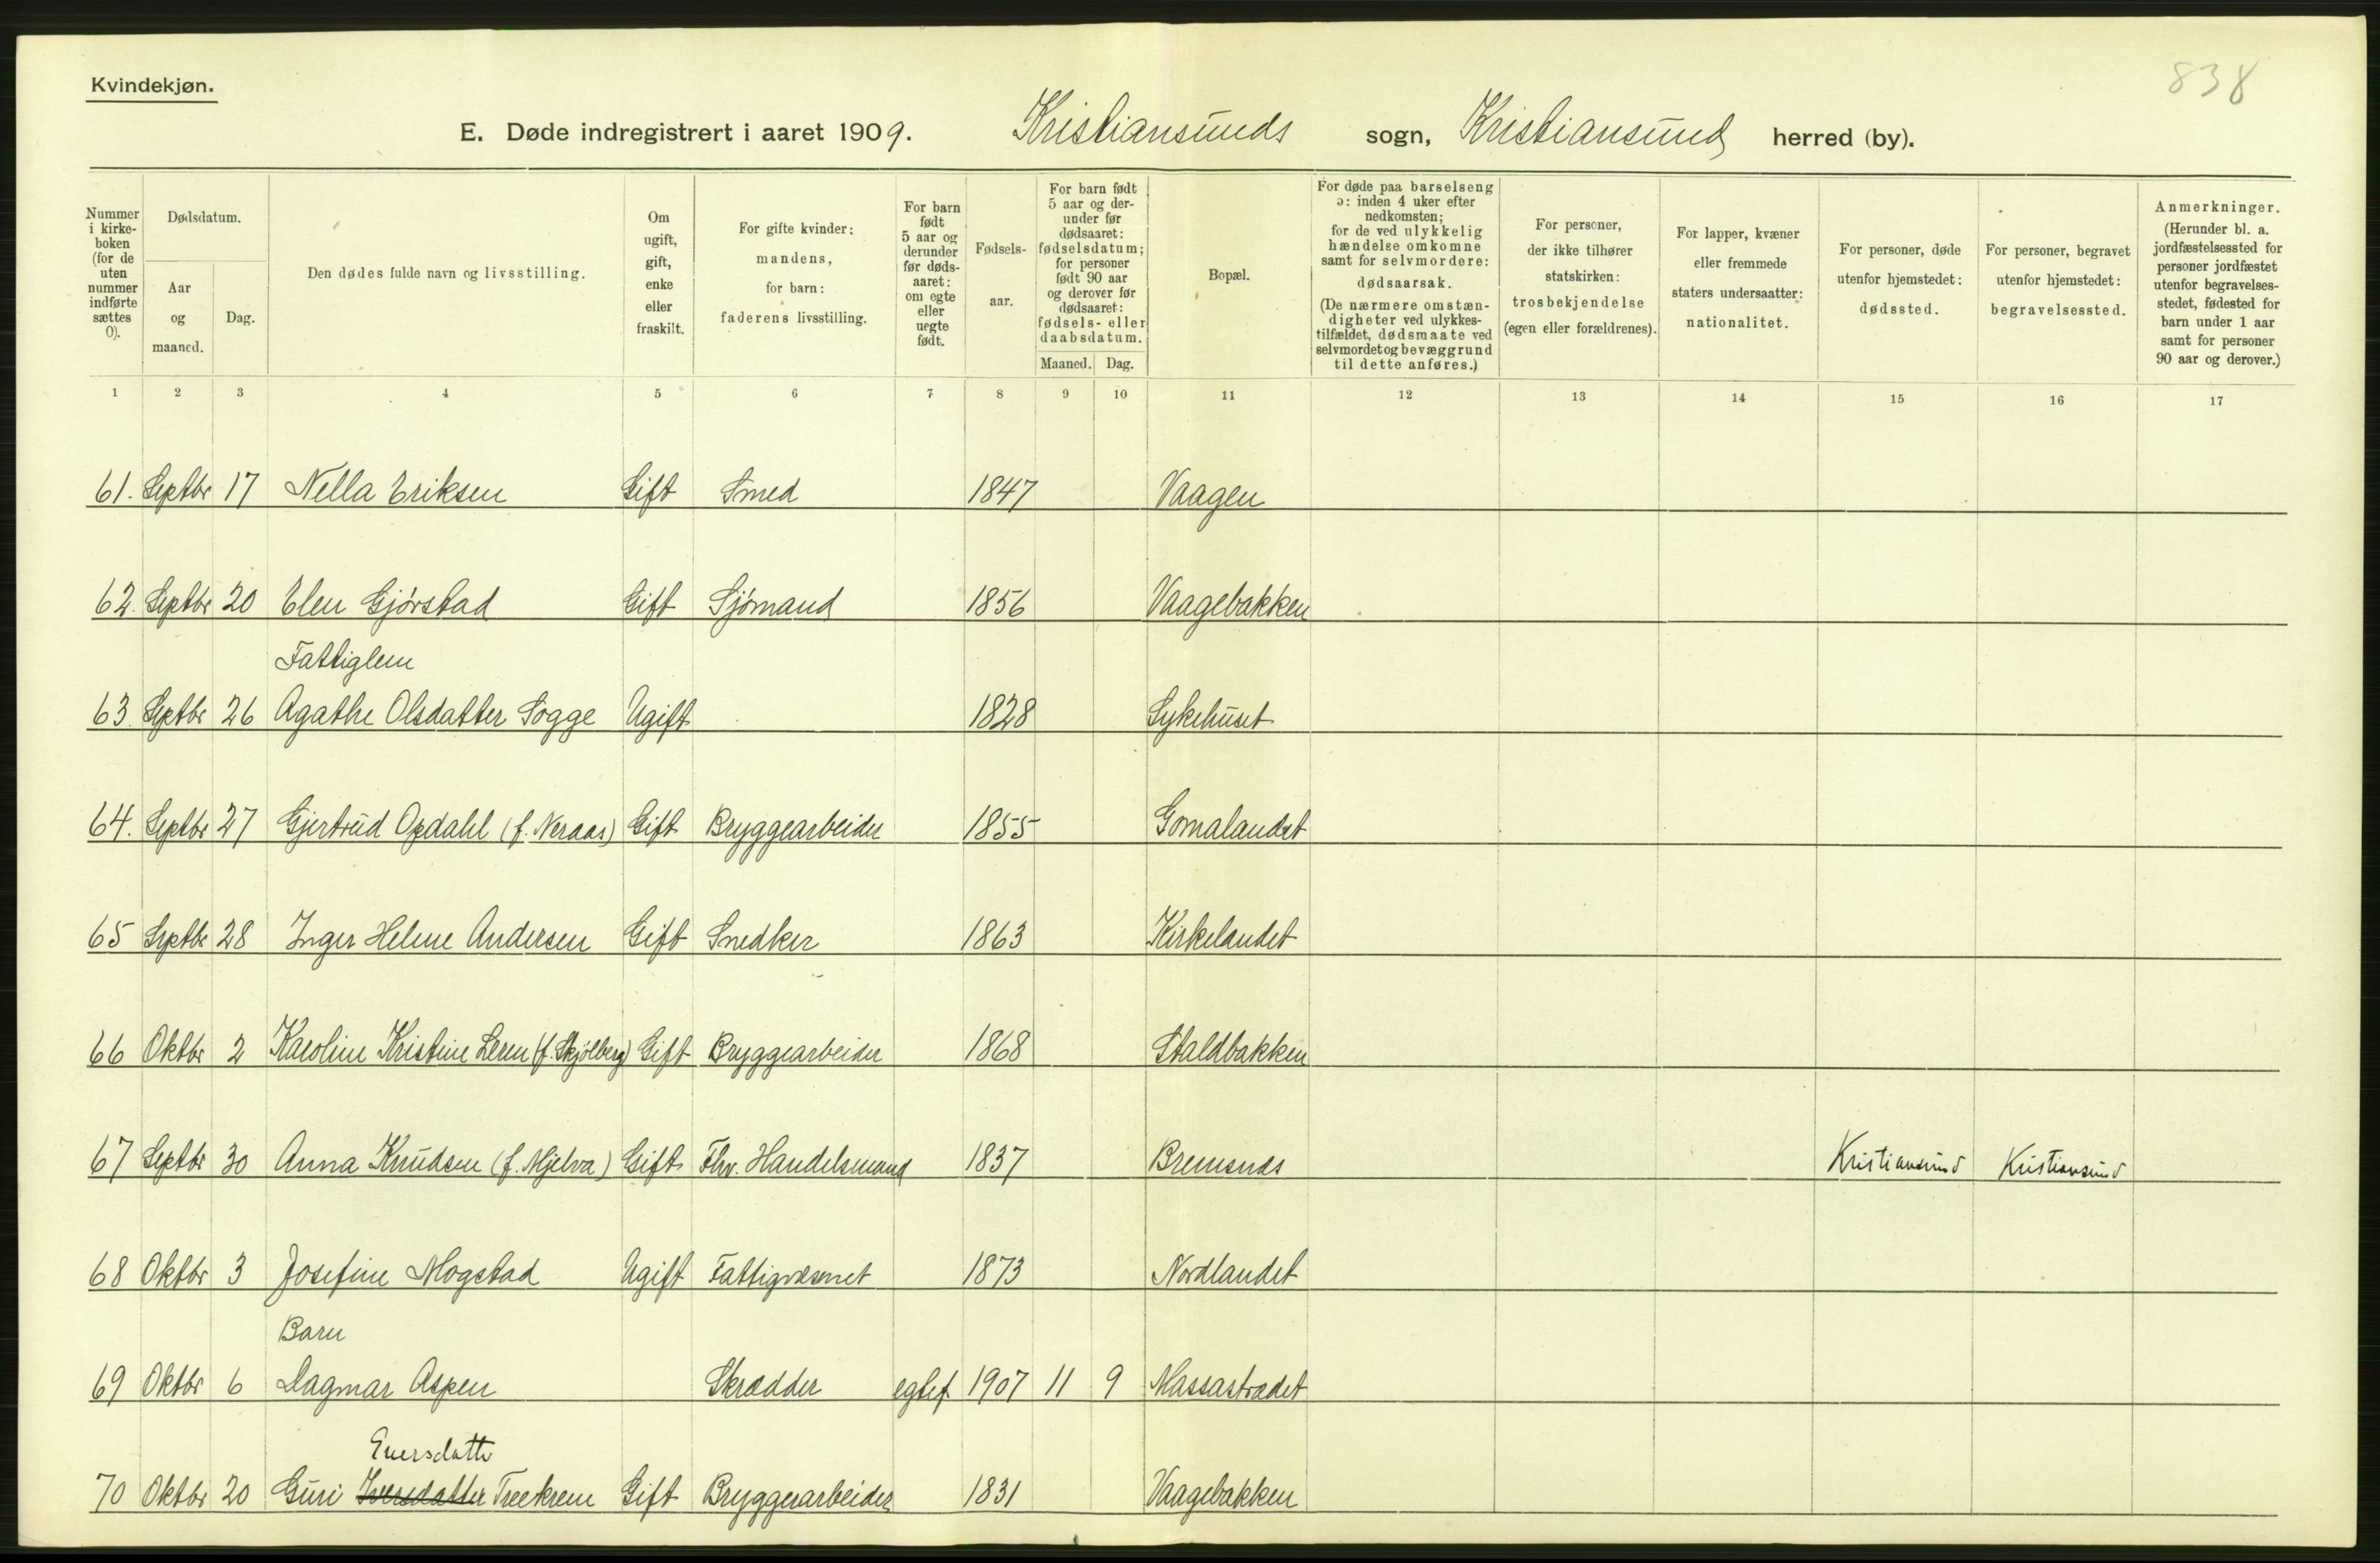 Kvindekjøn.
838
E. Døde indregistrert i aaret 1909. Kristiansunds sogn, Kristiansund herred (by).
Nummer i kirke-boken (for de uten nummer indførte sættes 0).
Dødsdatum.
Aar og maaned.
Dag.
Den dødes fulde navn og livsstilling.
Om ugift, gift, enke eller fraskilt.
For gifte kvinder: mandens, for barn: faderens livsstilling.
For barn født 5 aar og derunder før døds-aaret: om egte eller uegte født.
Fødsels-aar.
For barn født 5 aar og der-under før dødsaaret: fødselsdatum; for personer født 90 aar og derover før dødsaaret: fødsels- eller daabsdatum.
Maaned. Dag.
Bopæl.
For døde paa barselseng ɔ: inden 4 uker efter nedkomsten; for de ved ulykkelig hændelse omkomne samt for selvmordere: dødsaarsak. (De nærmere omstæn-digheter ved ulykkes-tilfældet, dødsmaate ved selvmordet og bevæggrund til dette anføres.)
For personer, der ikke tilhører statskirken: trosbekjendelse (egen eller forældrenes).
For lapper, kvæner eller fremmede staters undersaatter: nationalitet.
For personer, døde utenfor hjemstedet: dødssted.
For personer, begravet utenfor hjemstedet: begravelsessted.
Anmerkninger. (Herunder bl. a. jordfæstelsessted for personer jordfæstet utenfor begravelses-stedet, fødested for barn under 1 aar samt for personer 90 aar og derover.)
1 2 3 4 5 6 7 8 9 10 11 12 13 14 15 16 17
61. Septbr 17 Nella Eriksen Gift Smed 1847 Vaagen
62. Septbr 20 Elen Gjörstad Gift Sjömand 1856 Vaagebakken
Fattiglem
63. Septbr 26 Agathe Olsdatter Sogge Ugift 1828 Sykehuset
64. Septbr 27 Gjertrud Opdahl (f. Neraas) Gift Bryggearbeider 1855 Gomalandet
65 Septbr 28 Inger Helene Andersen Gift Snedker 1863 Kirkelandet
66 Oktbr 2 Karoline Kristine Leren (f. Skjölberg) Gift Bryggearbeider 1868 Staldbakken
67 Septbr 30 Anna Knudsen (f. Mjelva) Gift Fhv. Handelsmand 1837 Bremsnes Kristiansund Kristiansund
68 Oktbr 3 Josefine Mogstad Ugift Fattigvæsenet 1873 Nordlandet
Barn
69 Oktbr 6 Dagmar Aspen Skrædder egtef 1907 11 9 Massastrædet
Eversdatte
70 Oktbr 20 Guri Iversdatter Treekrem Gift Bryggerarbeider 1831 Vaagebakken